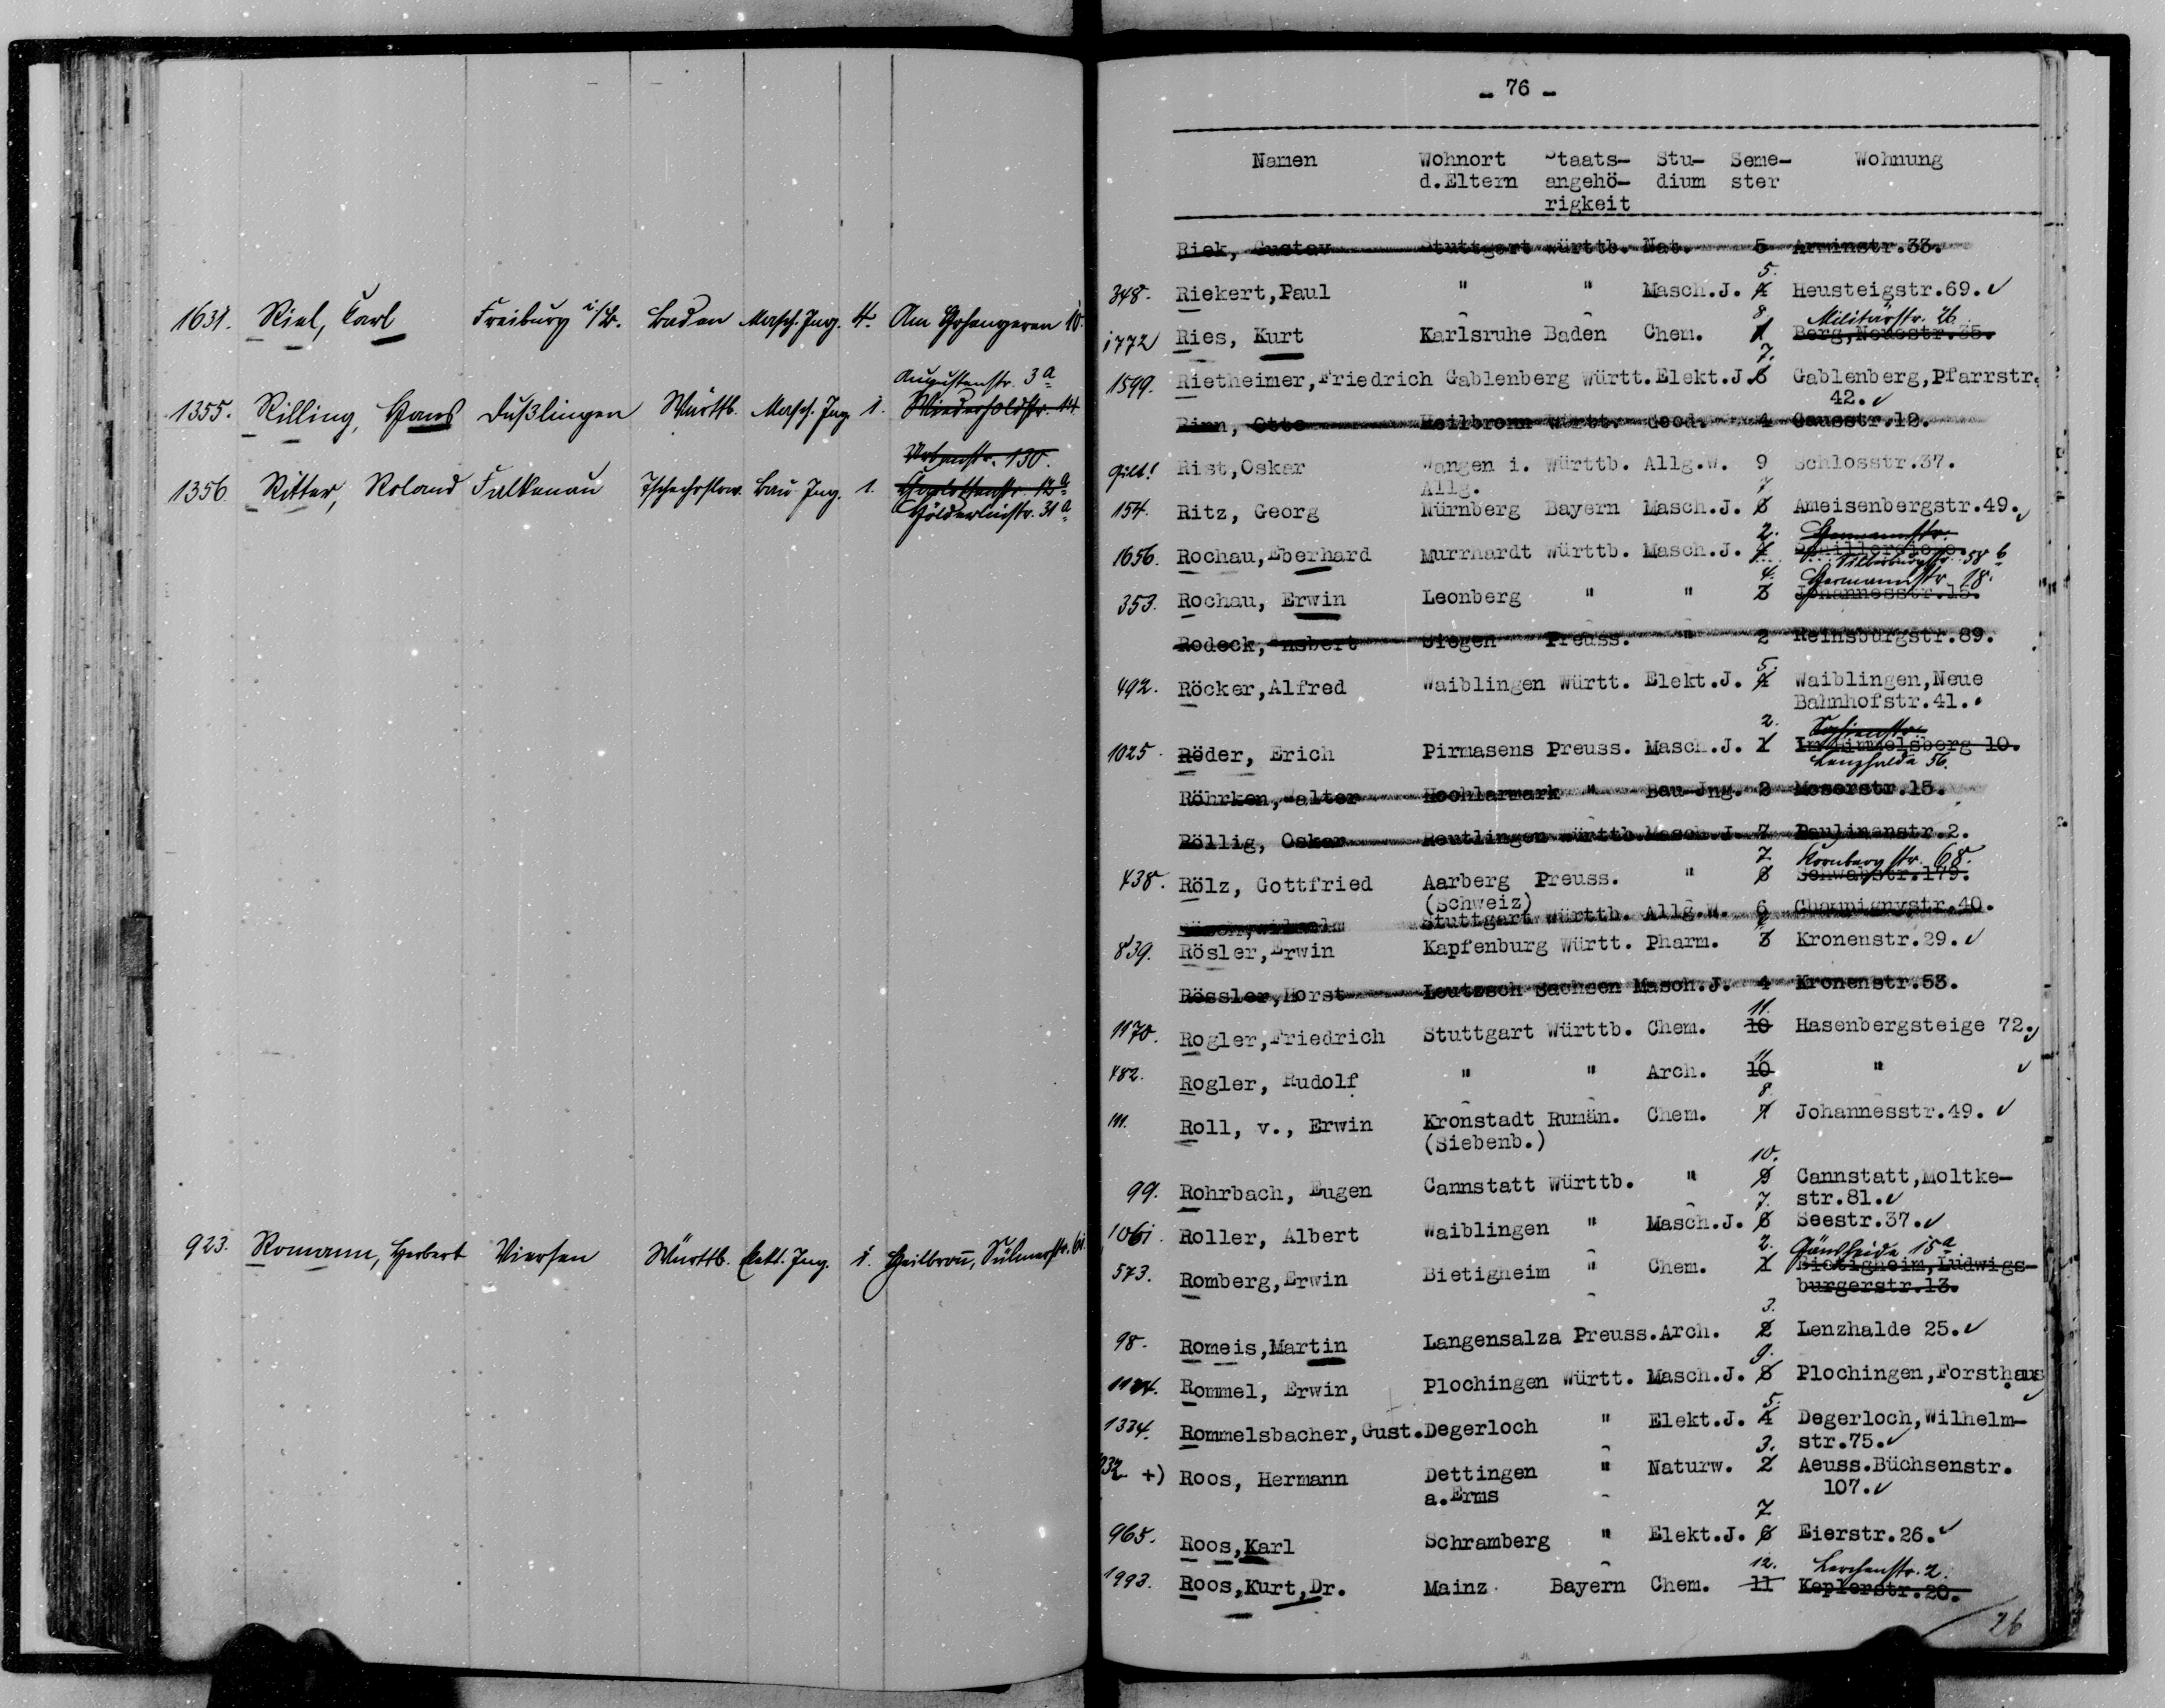 1631. Riel, Carl Freiburg i/Br. Baden Masch. Ing. 4. Am 10.
Augustenstr. 3a
1355. Rilling, Hans Dußlingen Württb. Masch. Ing. 1. Wiederholdstr. 14
Urbanstr. 130.
1356. Ritter, Roland Falkenau Tschechoslow. Bau Ing. 1. Charlottenstr. 12a
Hölderlinstr. 31a
923. Romann, Herbert Viersen Württb. Elekt. Ing. 1. Heilbronn, Sülmerstr. 61
- 76 -
Namen Wohnort Staats- Stu- Seme- Wohnung
d.Eltern angehö- dium ster
rigkeit
Riek, Gustav Stuttgart Württb. Nat. 5 Arminstr.33.
5.
348. Riekert,Paul " " Masch.J. 4 Heusteigstr.69.
8. Militärstr. 26.
1772 Ries, Kurt Karlsruhe Baden Chem. 1 Berg,Neuestr.35.
7.
1599. Rietheimer,Friedrich Gablenberg Württ.Elekt.J.6 Gablenberg,Pfarrstr.
42.
Rinn, Otto Heilbronn Württb. Geod. 4 Gausstr.12.
gilt! Rist,Oskar Wangen i. Württb. Allg.W. 9 Schlosstr.37.
Allg. 7
154. Ritz, Georg Nürnberg Bayern Masch.J. 6 Ameisenbergstr.49.
2.
1656. Rochau,Eberhard Murrhardt Württb. Masch.J. 1
Silberburgstr. 58 b
4. Germanstr. 18.
353. Rochau, Erwin Leonberg " " 3 Johannesstr.15.
Rodeck, Ansbert Siegen Preuss. " 2 Reinsburgstr.89.
5.
492. Röcker,Alfred Waiblingen Württ. Elekt.J. 4 Waiblingen,Neue
Bahnhofstr.41.
2. Sofienstr.
1025. Röder, Erich Pirmasens Preuss. Masch.J. 1 Im Himmelsberg 10.
Lenzhalde 56.
Röhrken,Walter Hochlarmark " Bau-Jng. 2 Moserstr.15.
Röllig, Oskar Reutlingen Württb.Masch.J. 7 Paulinenstr.2.
7. Kornbergstr. 68.
438. Rölz, Gottfried Aarberg Preuss. " 6 Schwabstr.179.
(Schweiz)
Stuttgart Württb. Allg.W. 6 Champignystr.40.
839. Rösler,Erwin Kapfenburg Württ. Pharm. 3 Kronenstr.29.
Rössler,Horst Leutzsch Sachsen Masch.J. 4 Kronenstr.53.
11.
1170. Rogler,Friedrich Stuttgart Württb. Chem. 10 Hasenbergsteige 72.
11
482. Rogler, Rudolf " " Arch. 10 "
8.
111. Roll, v., Erwin Kronstadt Rumän. Chem. 7 Johannesstr.49.
(Siebenb.)
10.
99. Rohrbach, Eugen Cannstatt Württb. " 9 Cannstatt,Moltke-
7. str.81.
1061. Roller, Albert Waiblingen " Masch.J. 6 Seestr.37.
2. Gänsheide 15a
573. Romberg,Erwin Bietigheim " Chem. 1 Bietigheim,Ludwigs-
burgerstr.13.
3.
98. Romeis,Martin Langensalza Preuss.Arch. 2 Lenzhalde 25.
9.
1124. Rommel, Erwin Plochingen Württ. Masch.J. 8 Plochingen,Forsthaus
5.
1334. Rommelsbacher,Gust.Degerloch " Elekt.J. 4 Degerloch,Wilhelm-
3. str.75.
932 +) Roos, Hermann Dettingen " Naturw. 2 Aeuss.Büchsenstr.
a.Erms 107.
7
965. Roos,Karl Schramberg " Elekt.J. 6 Eierstr.26.
12. Lerchenstr. 2.
1993. Roos,Kurt,Dr. Mainz Bayern Chem. 11 Keplerstr.20.
26